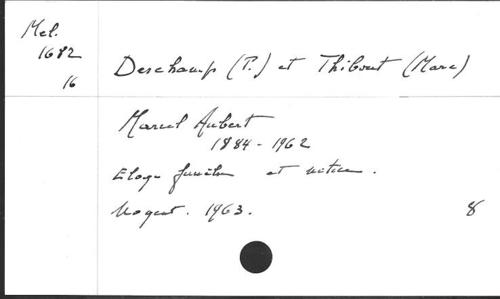 Mel.
1682
16
Deschamp (P.) et Thibout (Marc)
Marcel Aubert
1884-1962
Eloge funèbre et notice.
Nogent. 1963. 8